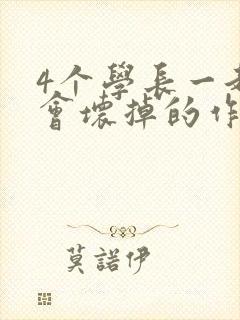 4个學長一
會壞掉的作
莫諾伊